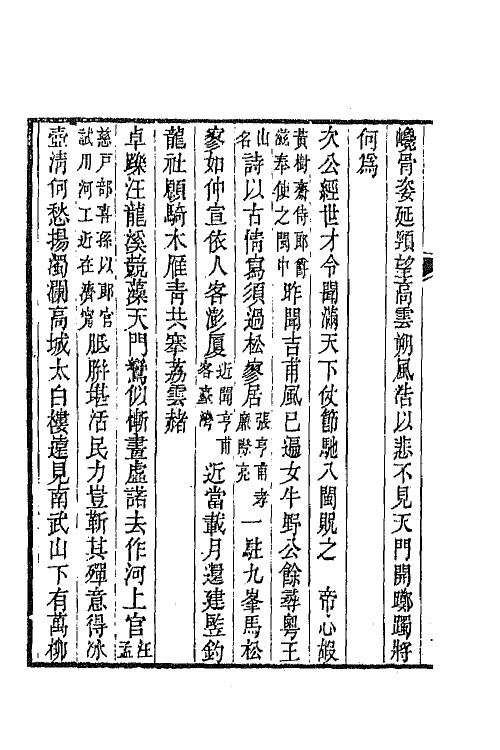 巉骨姿延頸望高雲朔風浩以悲不見天門開躑躅將
何爲
次公經世才令聞滿天下仗節馳入閩覜之　帝心嘏
黃樹齋侍郎爵
滋奉使之閩中
昨聞吉甫風已遍女牛野公餘尋粵王
山
名
詩以古情寫須過松寥居
張亨甫孝
廉際亮
一駐九峯馬松
寥如仲宣依人客澎厦
近聞亨甫
客臺灣
近當載月還建監釣
龍社願騎木雁青共搴荔雲赭
卓躒汪龍溪競藻天門鶩似慚畫虛諾去作河上官
汪
孟
慈戸部喜孫以郎官
試用河工近在濟甯
胝胼堪活民力豈靳其殫意得冰
壺淸何愁揚濁瀾高城太白樓遠見南武山下有萬柳